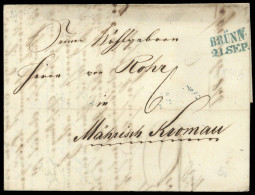 BRÜNN
21. SEP.
Seiner Wohlgeboren
Herrn von Rohr
6
in
Mährisch Kromau